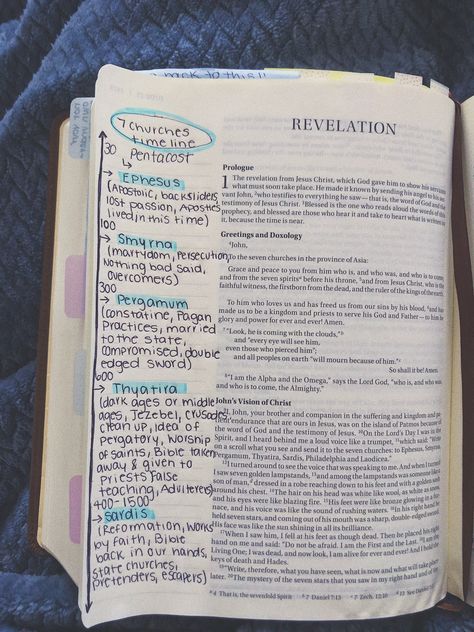 back to this!!
7 churches
timeline
30
Pentacost
EPHESUS
(Apostolic, backsliders,
lost passion, Apostles
lived in this time)
100
Smyrna
(martydom, Persecution,
Nothing bad said,
overcomers)
300
Pergamum
(constatine, Pagan
Practices, married
to the state,
compromised, double
edged sword)
600
Thyatira
(dark ages or middle
ages, Jezebel, crusades,
clean up, idea of
pergatory, worship
of saints, Bible taken
away & given to
priests false
teaching, Adulterers)
400-1500
sardis
(Reformation, works
by faith, Bible
back in our hands,
state churches,
pretenders, escapers)
REVELATION
Prologue
1 The revelation from Jesus Christ, which God gave him to show his servants
what must soon take place. He made it known by sending his angel to his ser-
vant John, 2who testifies to everything he saw — that is, the word of God and the
testimony of Jesus Christ. 3Blessed is the one who reads aloud the words of this
prophecy, and blessed are those who hear it and take to heart what is written in
it, because the time is near.
Greetings and Doxology
4John,
To the seven churches in the province of Asia:
Grace and peace to you from him who is, and who was, and who is to come,
and from the seven spirits a before his throne, 5and from Jesus Christ, who is the
faithful witness, the firstborn from the dead, and the ruler of the kings of the earth.
To him who loves us and has freed us from our sins by his blood, 6and has
made us to be a kingdom and priests to serve his God and Father — to him be
glory and power for ever and ever! Amen.
7“Look, he is coming with the clouds,” b
and “every eye will see him,
even those who pierced him”;
and all peoples on earth “will mourn because of him.” c
So shall it be! Amen.
8“I am the Alpha and the Omega,” says the Lord God, “who is, and who was,
and who is to come, the Almighty.”
John's Vision of Christ
9I, John, your brother and companion in the suffering and kingdom and pa-
tient endurance that are ours in Jesus, was on the island of Patmos because of
the word of God and the testimony of Jesus. 10On the Lord's Day I was in the
Spirit, and I heard behind me a loud voice like a trumpet, 11which said: “Write
on a scroll what you see and send it to the seven churches: to Ephesus, Smyrna,
Pergamum, Thyatira, Sardis, Philadelphia and Laodicea.”
12I turned around to see the voice that was speaking to me. And when I turned
I saw seven golden lampstands, 13and among the lampstands was someone like a
son of man, d dressed in a robe reaching down to his feet and with a golden sash
around his chest. 14The hair on his head was white like wool, as white as snow,
and his eyes were like blazing fire. 15His feet were like bronze glowing in a fur-
nace, and his voice was like the sound of rushing waters. 16In his right hand he
held seven stars, and coming out of his mouth was a sharp, double-edged sword.
His face was like the sun shining in all its brilliance.
17When I saw him, I fell at his feet as though dead. Then he placed his right
hand on me and said: “Do not be afraid. I am the First and the Last. 18I am the
Living One; I was dead, and now look, I am alive for ever and ever! And I hold the
keys of death and Hades.
19“Write, therefore, what you have seen, what is now and what will take place
later. 20The mystery of the seven stars that you saw in my right hand and of the
a 4 That is, the sevenfold Spirit b 7 Daniel 7:13 c 7 Zech. 12:10 d 13 See Daniel